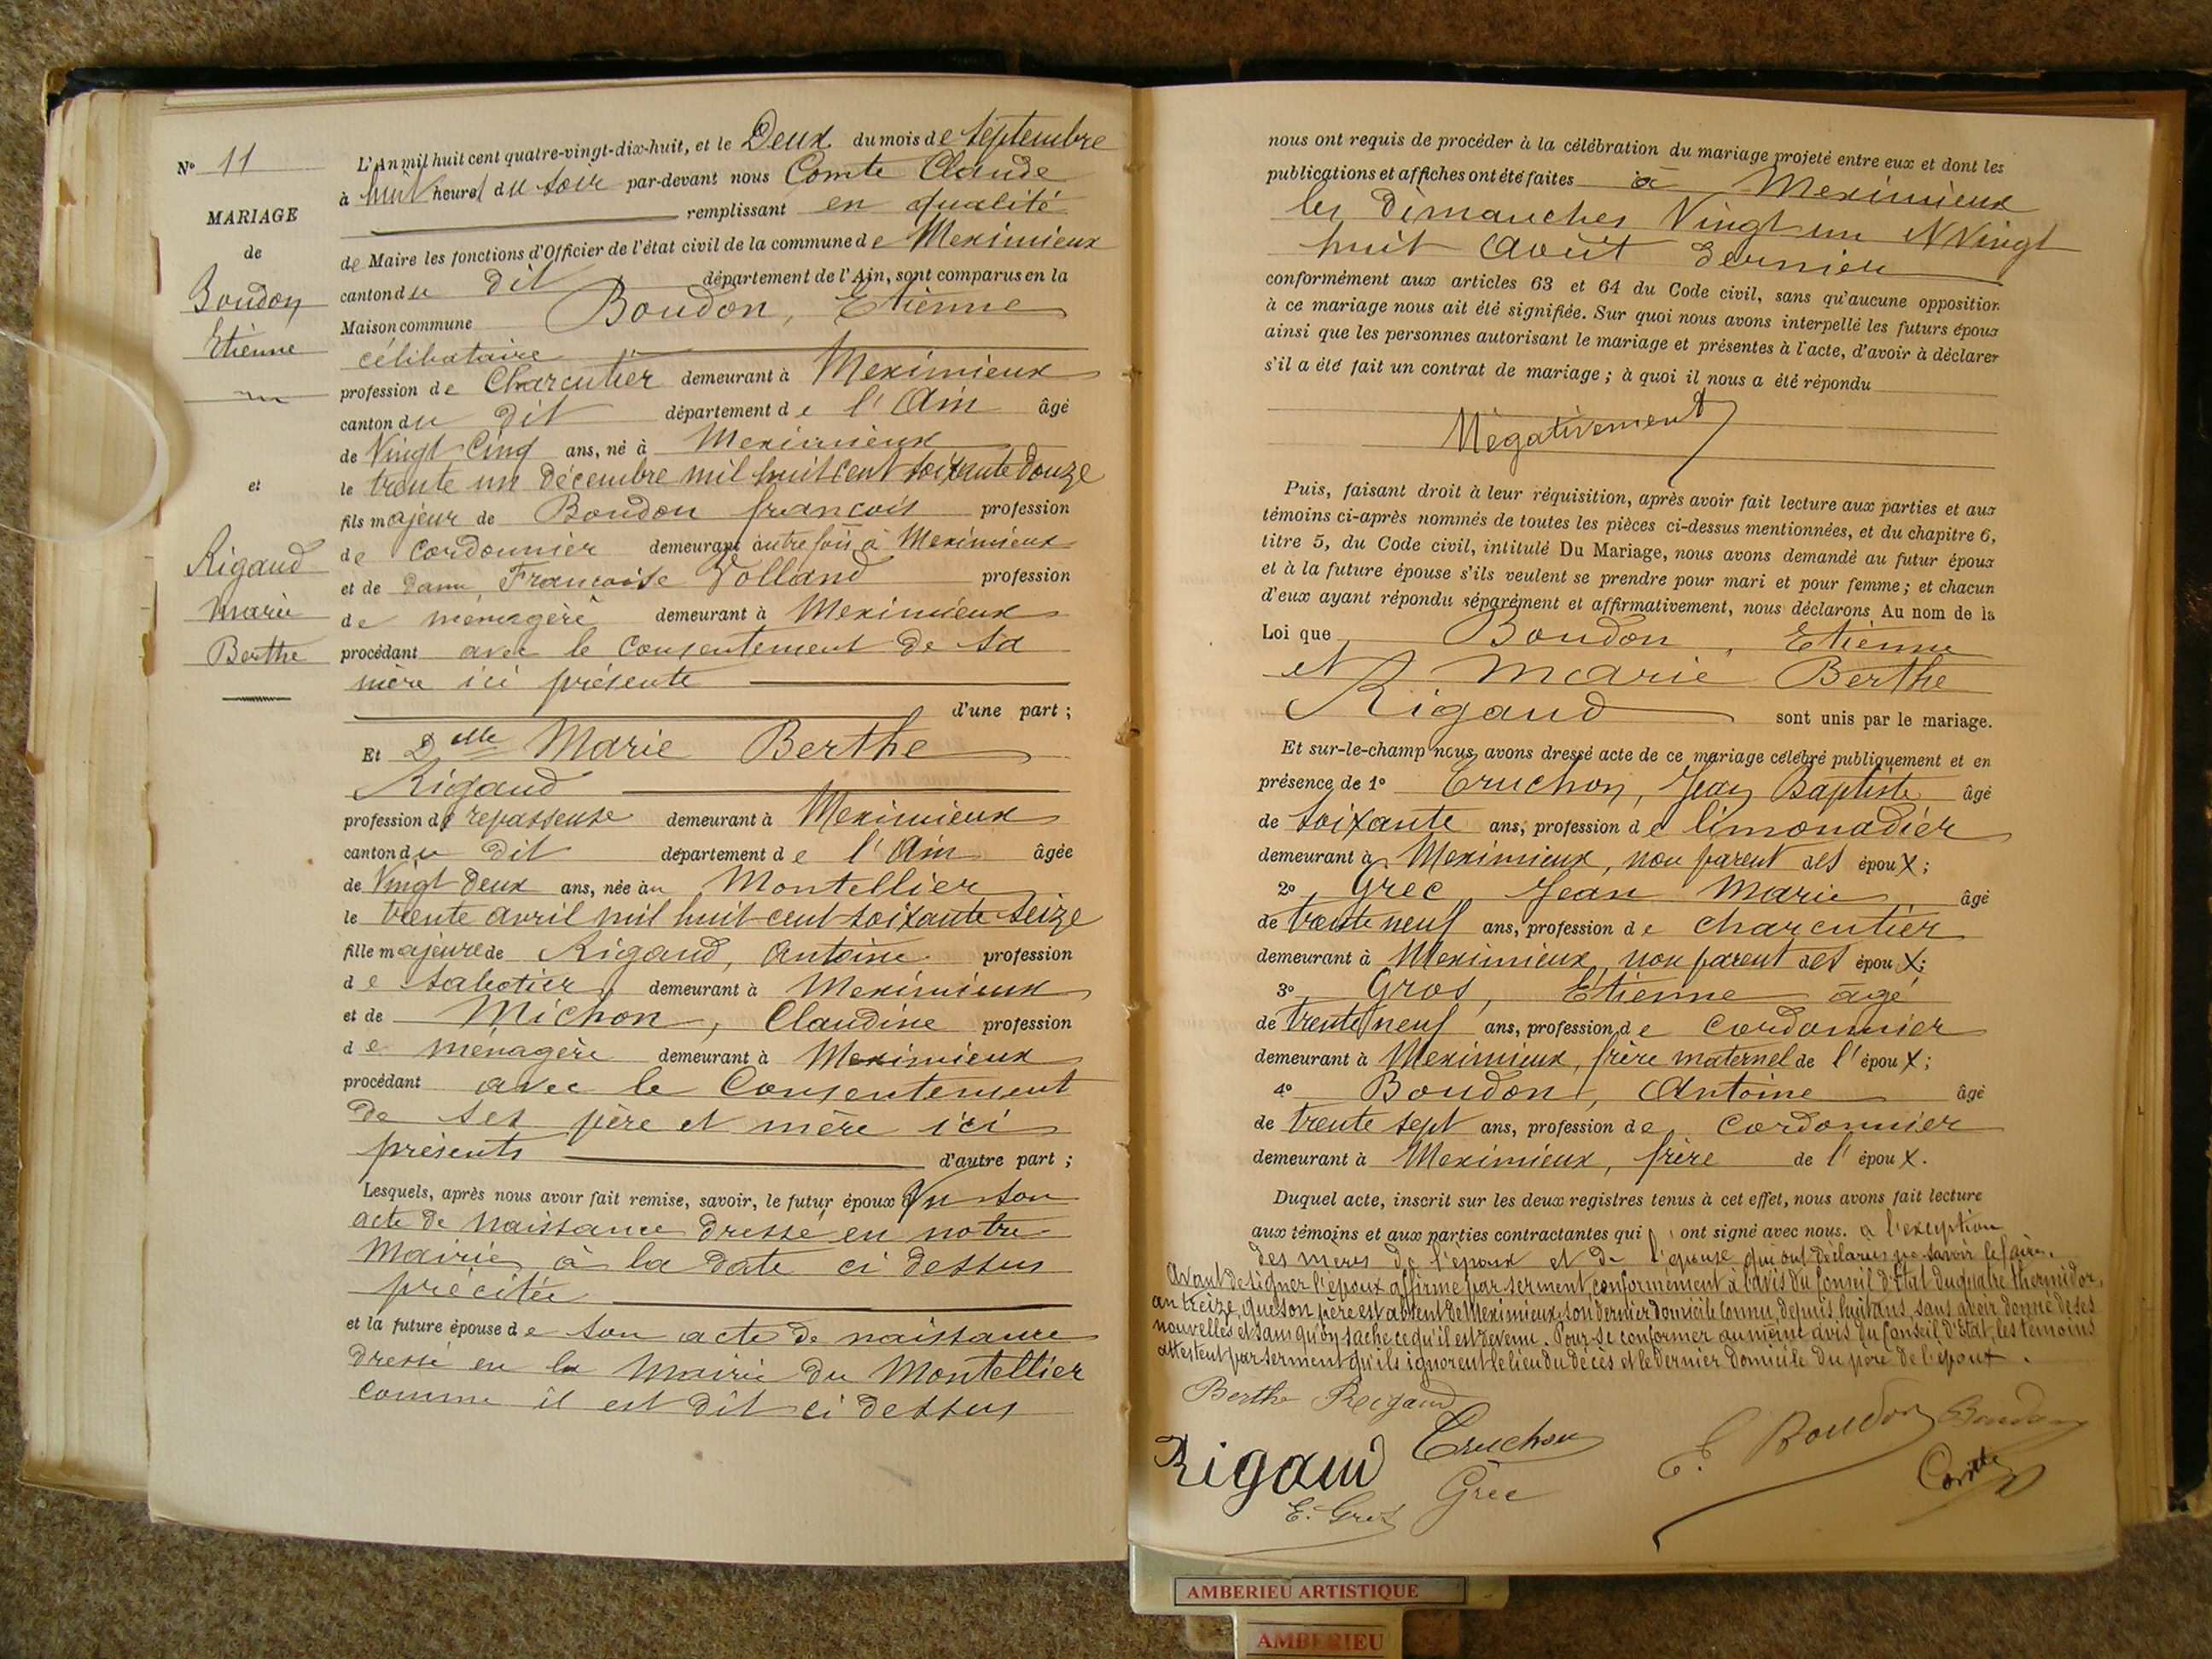 N° 11
MARIAGE
de
Boudon
Etienne
et
Rigaud
Marie
Berthe
L'An mil huit cent quatre-vingt-dix-huit, et le Deux du mois de Septembre
à huit heures du soir par-devant nous Comte Claude
remplissant en qualité
de Maire les fonctions d'Officier de l'état civil de la commune de Meximieux
canton du dit département de l'Ain, sont comparus en la
Maison commune Boudon, Etienne
célibataire
profession de Charcutier demeurant à Meximieux
canton du dit département de l'Ain âgé
de Vingt Cinq ans, né à Meximieux
le trente un décembre mil huit cent soixante douze
fils majeur de Boudon françois profession
de cordonnier demeurant autrefois à Meximieux
et de dame Françoise Volland profession
de ménagère demeurant à Meximieux
procédant avec le consentement de sa
mère ici présente
d'une part;
Et Delle Marie Berthe
Rigaud
profession de repasseuse demeurant à Meximieux
canton du dit département de l'Ain âgée
de Vingt deux ans, née au Montellier
le trente avril mil huit cent soixante seize
fille majeure de Rigaud, Antoine profession
de sabotier demeurant à Meximieux
et de Michon, Claudine profession
de ménagère demeurant à Meximieux
procédant avec le Consentement
de ses père et mère ici
présents d'autre part;
Lesquels, après nous avoir fait remise, savoir, le futur époux Vu son
acte de naissance dressé en notre
Mairie à la date ci dessus
précitée
et la future épouse de son acte de naissance
dressé en la Mairie du Montellier
comme il est dit ci dessus
nous ont requis de procéder à la célébration du mariage projeté entre eux et dont les
publications et affiches ont été faites à Meximieux
les dimanches Vingt un et Vingt
huit Août dernier
conformément aux articles 63 et 64 du Code civil, sans qu'aucune opposition
à ce mariage nous ait été signifiée. Sur quoi nous avons interpellé les futurs époux
ainsi que les personnes autorisant le mariage et présentes à l'acte, d'avoir à déclarer
s'il a été fait un contrat de mariage; à quoi il nous a été répondu
Négativement
Puis, faisant droit à leur réquisition, après avoir fait lecture aux parties et aux
témoins ci-après nommés de toutes les pièces ci-dessus mentionnées, et du chapitre 6,
titre 5, du Code civil, intitulé Du Mariage, nous avons demandé au futur époux
et à la future épouse s'ils veulent se prendre pour mari et pour femme; et chacun
d'eux ayant répondu séparément et affirmativement, nous déclarons Au nom de la
Loi que Boudon, Etienne
et Marie Berthe
Rigaud sont unis par le mariage.
Et sur-le-champ nous avons dressé acte de ce mariage célébré publiquement et en
présence de 1° Truchon, Jean Baptiste âgé
de soixante ans, profession de limonadier
demeurant à Meximieux, non parent des époux;
2° Grec Jean Marie âgé
de trente neuf ans, profession de charcutier
demeurant à Meximieux, non parent des époux;
3° Gros, Etienne âgé
de trente neuf ans, profession de cordonnier
demeurant à Meximieux, frère maternel de l'époux;
4° Boudon, Antoine âgé
de trente sept ans, profession de cordonnier
demeurant à Meximieux, frère de l'époux.
Duquel acte, inscrit sur les deux registres tenus à cet effet, nous avons fait lecture
aux témoins et aux parties contractantes qui ont signé avec nous. à l'exception
des mères de l'époux et de l'épouse qui ont déclaré ne savoir le faire.
Avant de signer l'époux affirme par serment, conformément à l'avis du Conseil d'Etat du quatre thermidor,
an treize, que son père est absent de Meximieux, son dernier domicile connu, depuis huit ans, sans avoir donné de ses
nouvelles et sans qu'on sache ce qu'il est devenu. Pour se conformer au même avis du Conseil d'Etat, les témoins
attestent par serment qu'ils ignorent le lieu du décès et le dernier domicile du père de l'époux.
Berthe Rigaud
Truchon
E. Boudon Boudon
Rigaud
Grec
Comte
E. Gros
AMBERIEU ARTISTIQUE
AMBERIEU